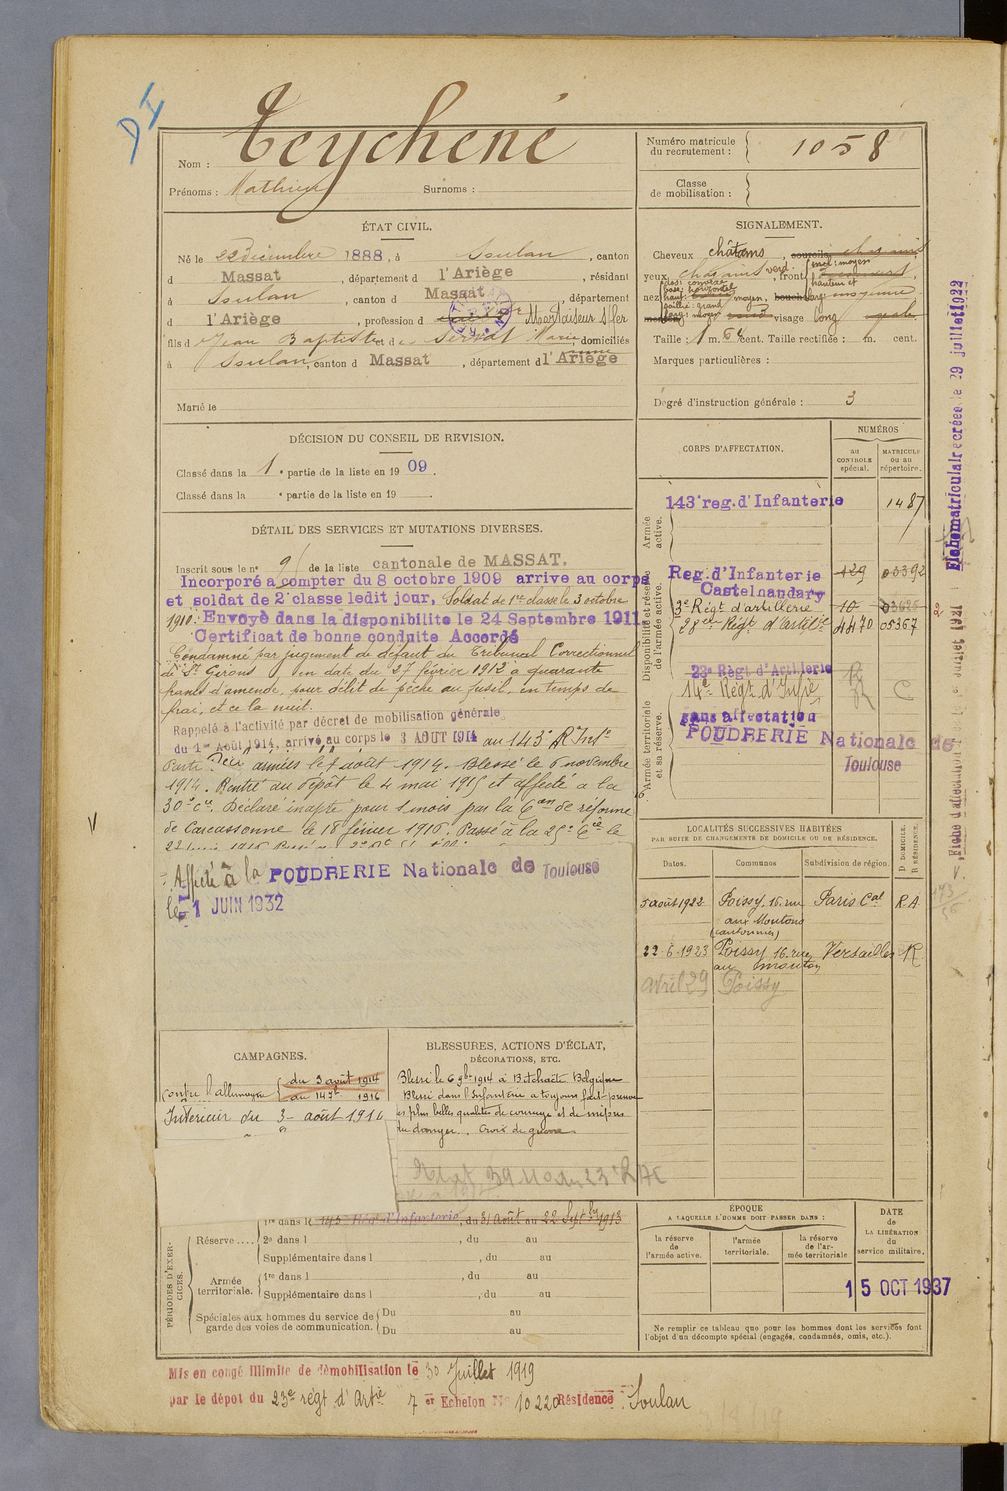 Teychené
Nom :
Prénoms : Mathieu Surnoms :
Numéro matricule
du recrutement : 1058
Classe
de mobilisation :
ÉTAT CIVIL.
Né le 22 Décembre 1888, à Soulan, canton
d Massat, département d l'Ariège, résidant
à Soulan, canton d Massat, département
d l'Ariège, profession d
fils d Jean Baptiste et de Servat Marie domiciliés
à Soulan, canton d Massat, département d l'Ariège
Marié le
SIGNALEMENT.
Cheveux châtains, sourcils
yeux front
nez moyen,
visage long
Taille : 1 m. 64 cent. Taille rectifiée : m. cent.
Marques particulières :
Degré d'instruction générale : 3
DÉCISION DU CONSEIL DE REVISION.
Classé dans la 1e partie de la liste en 1909.
Classé dans la e partie de la liste en 19
DÉTAIL DES SERVICES ET MUTATIONS DIVERSES.
Inscrit sous le n° 9 de la liste cantonale de MASSAT.
Incorporé a compter du 8 octobre 1909 arrive au corps
et soldat de 2e classe ledit jour, Soldat de 1re classe le 3 octobre
1910. Envoyé dans la disponibilite le 24 Septembre 1911
Certificat de bonne conduite Accordé
Condamné par jugement de défaut du Tribunal Correctionnel
de St Girons en date du 27 février 1912 à quarante
francs d'amende, pour délit de pêche au fusil, en temps de
frai, et ce la nuit.
Rappelé à l'activité par décret de mobilisation générale
du 1er Août 1914, arrivé au corps le 3 AOUT 1914 au 143e R. Infie
Parti aux armées le 7 août 1914. Blessé le 6 novembre
1914. Rentré au dépôt le 4 mai 1915 et affecté à la
30e Cie. Déclaré inapte pour 1 mois par la Con de réforme
de Carcassonne le 18 février 1916. Passé à la 25e Cie le
Affecté à la POUDRERIE Nationale de Toulouse
le 1 JUIN 1932
CORPS D'AFFECTATION.
NUMÉROS
au
CONTROLE
spécial.
MATRICULE
ou au
répertoire.
Armée
active.
143e reg. d'Infanterie 1487
Disponibilité et réserve
de l'armée active.
Reg. d'Infanterie 129 03392
Castelnaudary
3e Régt d'artillerie 10 03626
28e Régt d'artillie 4470 05367
23e Règt d'Artillerie
14e Régt d'Infie C
Armée territoriale
et sa réserve.
sans affectation
POUDRERIE Nationale de
Toulouse
LOCALITÉS SUCCESSIVES HABITÉES
PAR SUITE DE CHANGEMENTS DE DOMICILE OU DE RÉSIDENCE.
Dates. Communes Subdivision de région. D DOMICILE. R RÉSIDENCE.
5 août 1922 Poissy, 16 rue Paris Cal R.A
aux Moutons
(cantonnier)
22-6-1923 Poissy 16 rue Versailles R
au mouton
avril 29 Poissy
CAMPAGNES.
contre l'allemagne du 3 août 1914
1916
Intérieur du 3 août 1914
BLESSURES, ACTIONS D'ÉCLAT,
DÉCORATIONS, ETC.
Blessé le 6 9bre 1914 à Belgique
Blessé dans l'infanterie a toujours fait preuve
des plus belles qualités de courage et de mépris
du danger. Croix de guerre
PÉRIODES D'EXERCICES.
Réserve
1re dans le 143e Régt d'Infanterie, du 31 Août au 22 Septbre 1913
2e dans l , du au
Supplémentaire dans l , du au
Armée
territoriale.
1re dans l , du au
Supplémentaire dans l , du au
Spéciales aux hommes du service de
garde des voies de communication.
Du au
Du au
ÉPOQUE
A LAQUELLE L'HOMME DOIT PASSER DANS :
la réserve
de
l'armée active.
l'armée
territoriale.
la réserve
de l'armée territoriale
DATE
de
LA LIBÉRATION
du
service militaire.
15 OCT 1937
Ne remplir ce tableau que pour les hommes dont les services font
l'objet d'un décompte spécial (engagés, condamnés, omis, etc.).
Mis en congé illimité de démobilisation le 30 Juillet 1919
par le dépot du 23e régt d'Artie 7e Echelon No 10220 Résidence : Soulan
Fiche matriculaire créée le 29 juillet 1922